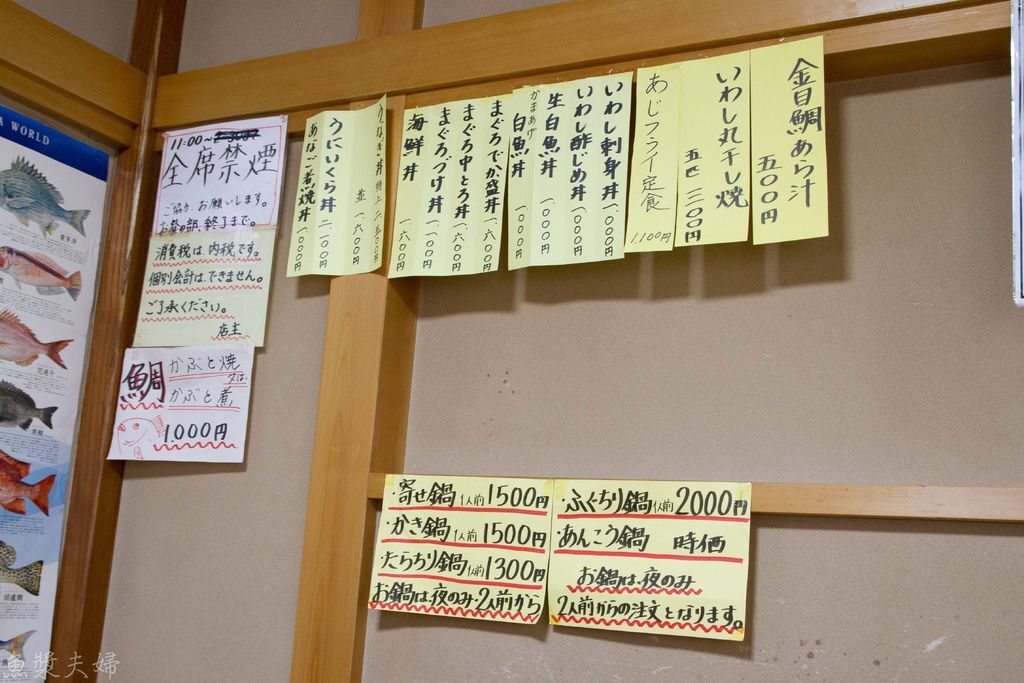 A WORLD
11:00～
全席禁煙
ご協力、お願いします。
お昼の部、終了まで。
消費税は、内税です。
個別会計は、できません。
ご了承ください。
店主
鯛
かぶと焼
又は
かぶと煮
1,000円
金目鯛あら汁
五〇〇円
いわし丸干し焼
五匹 三〇〇円
あじフライ定食
1,100円
いわし刺身丼 一、〇〇〇円
いわし酢じめ丼 一、〇〇〇円
生白魚丼 一、〇〇〇円
かまあげ白魚丼 一、〇〇〇円
まぐろでか盛丼 一、六〇〇円
まぐろ中とろ丼 一、六〇〇円
まぐろづけ丼 一、一〇〇円
海鮮丼 一、六〇〇円
うなぎ丼 特上 二、五〇〇円
並 一、六〇〇円
うにいくら丼 一、〇〇〇円
あなご煮焼丼 一、〇〇〇円
・寄せ鍋 1人前 1500円
・かき鍋 1人前 1500円
・たらちり鍋 1人前 1300円
お鍋は、夜のみ・2人前から
・ふぐちり鍋 1人前 2000円
・あんこう鍋 時価
お鍋は、夜のみ
2人前からの注文となります。
魚漿夫婦